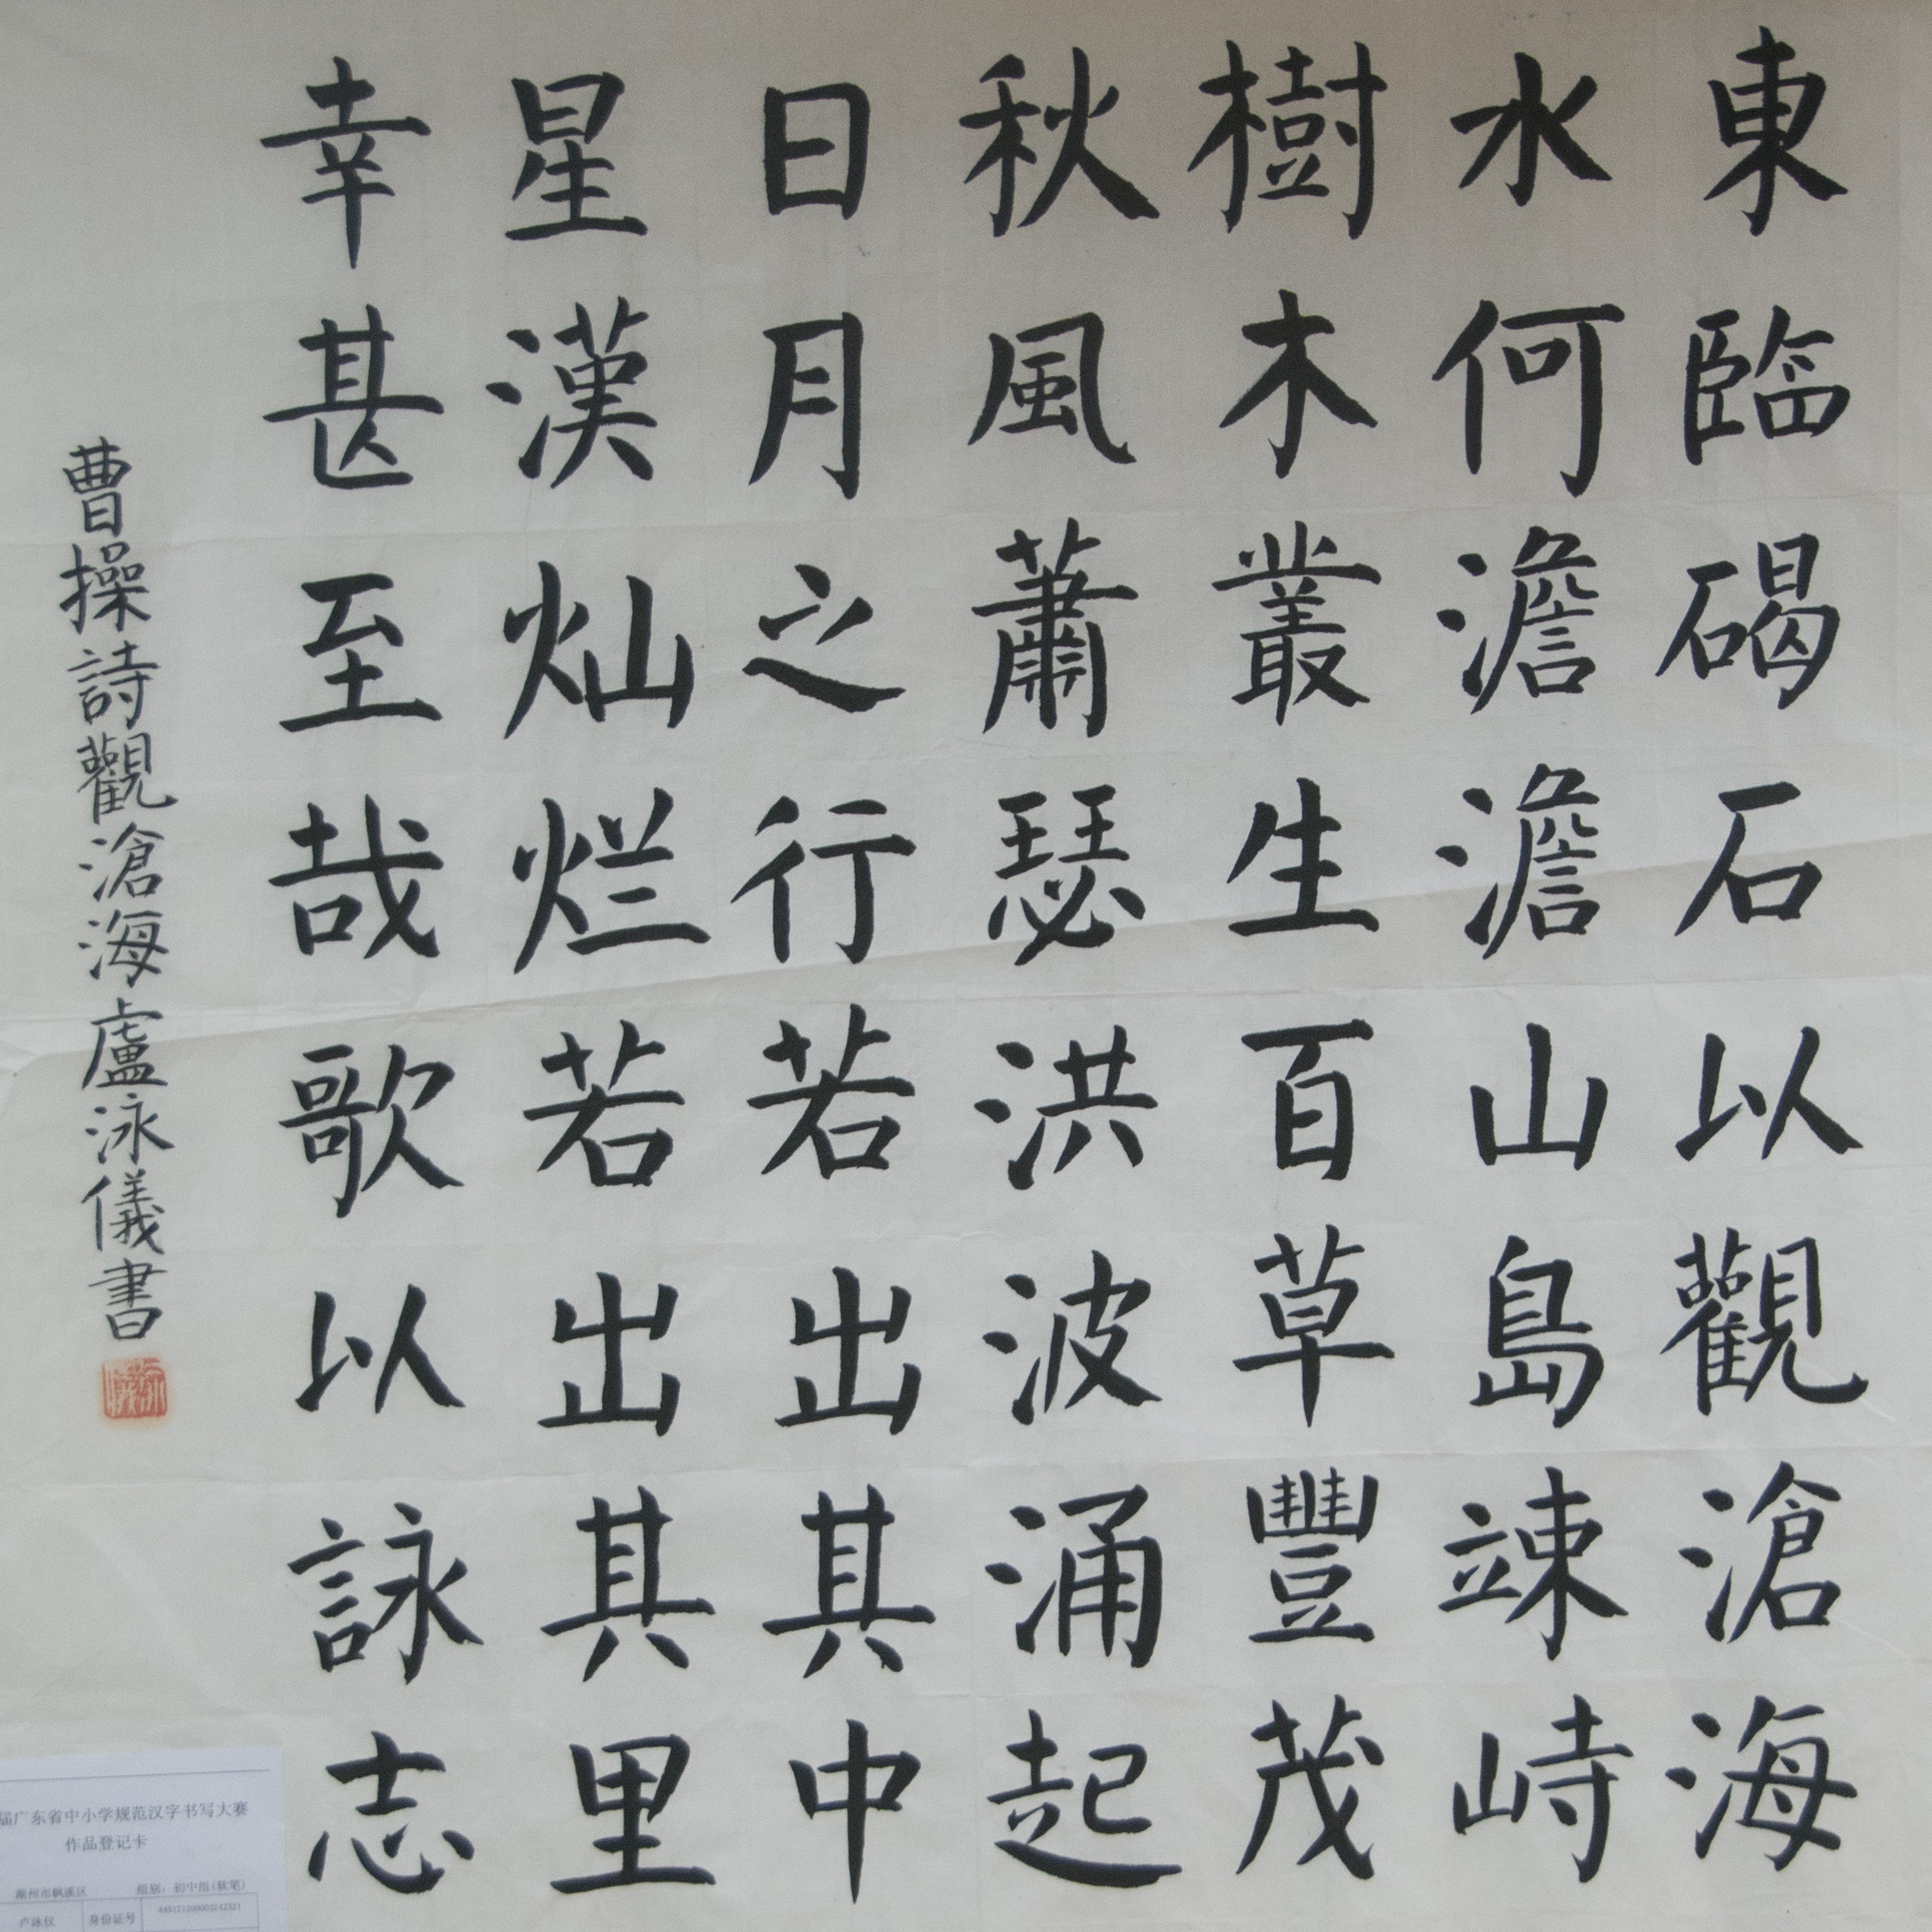 東臨碣石以觀滄海
水何澹澹山島竦峙
樹木叢生百草豐茂
秋風蕭瑟洪波涌起
日月之行若出其中
星漢灿烂若出其里
幸甚至哉歌以詠志
曹操詩觀滄海盧泳儀書
届广东省中小学规范汉字书写大赛
作品登记卡
潮州市枫溪区 组别：初中组(软笔)
卢泳仪 身份证号